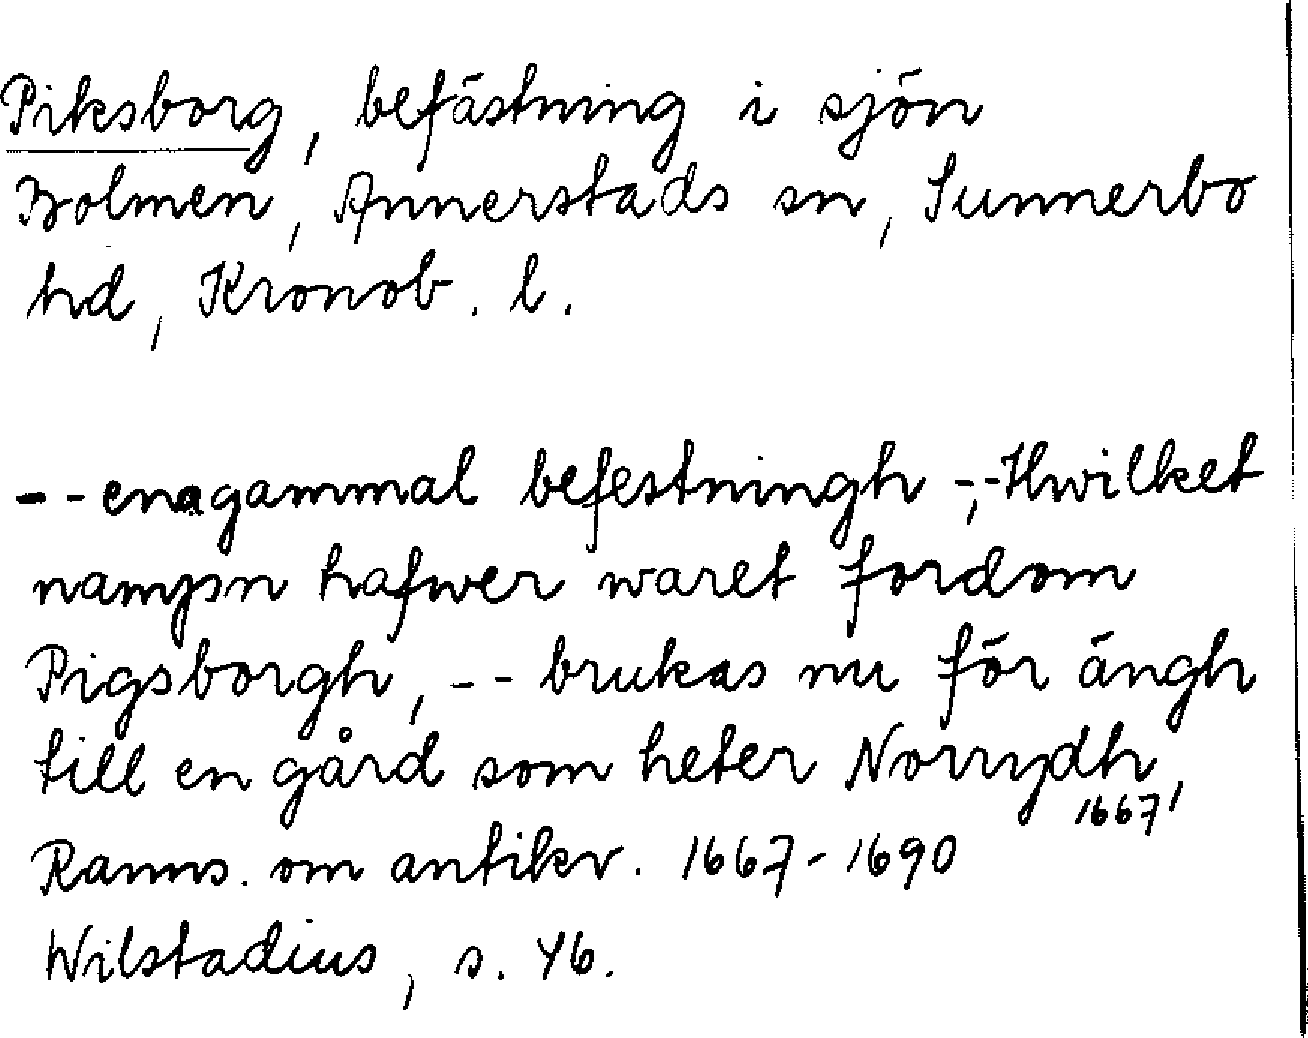 Piksborg, befästning i sjön
Bolmen, Annerstads sn, Sunnerbo
hd, Kronob. l.
-- en gammal befestningh -,- Hwilket
nampn hafwer waret fordom
Pigsborgh, -- brukas nu för ängh
till en gård som heter Norrydh,
1667
Ranns. om antikv. 1667-1690
Wilstadius, s. 46.